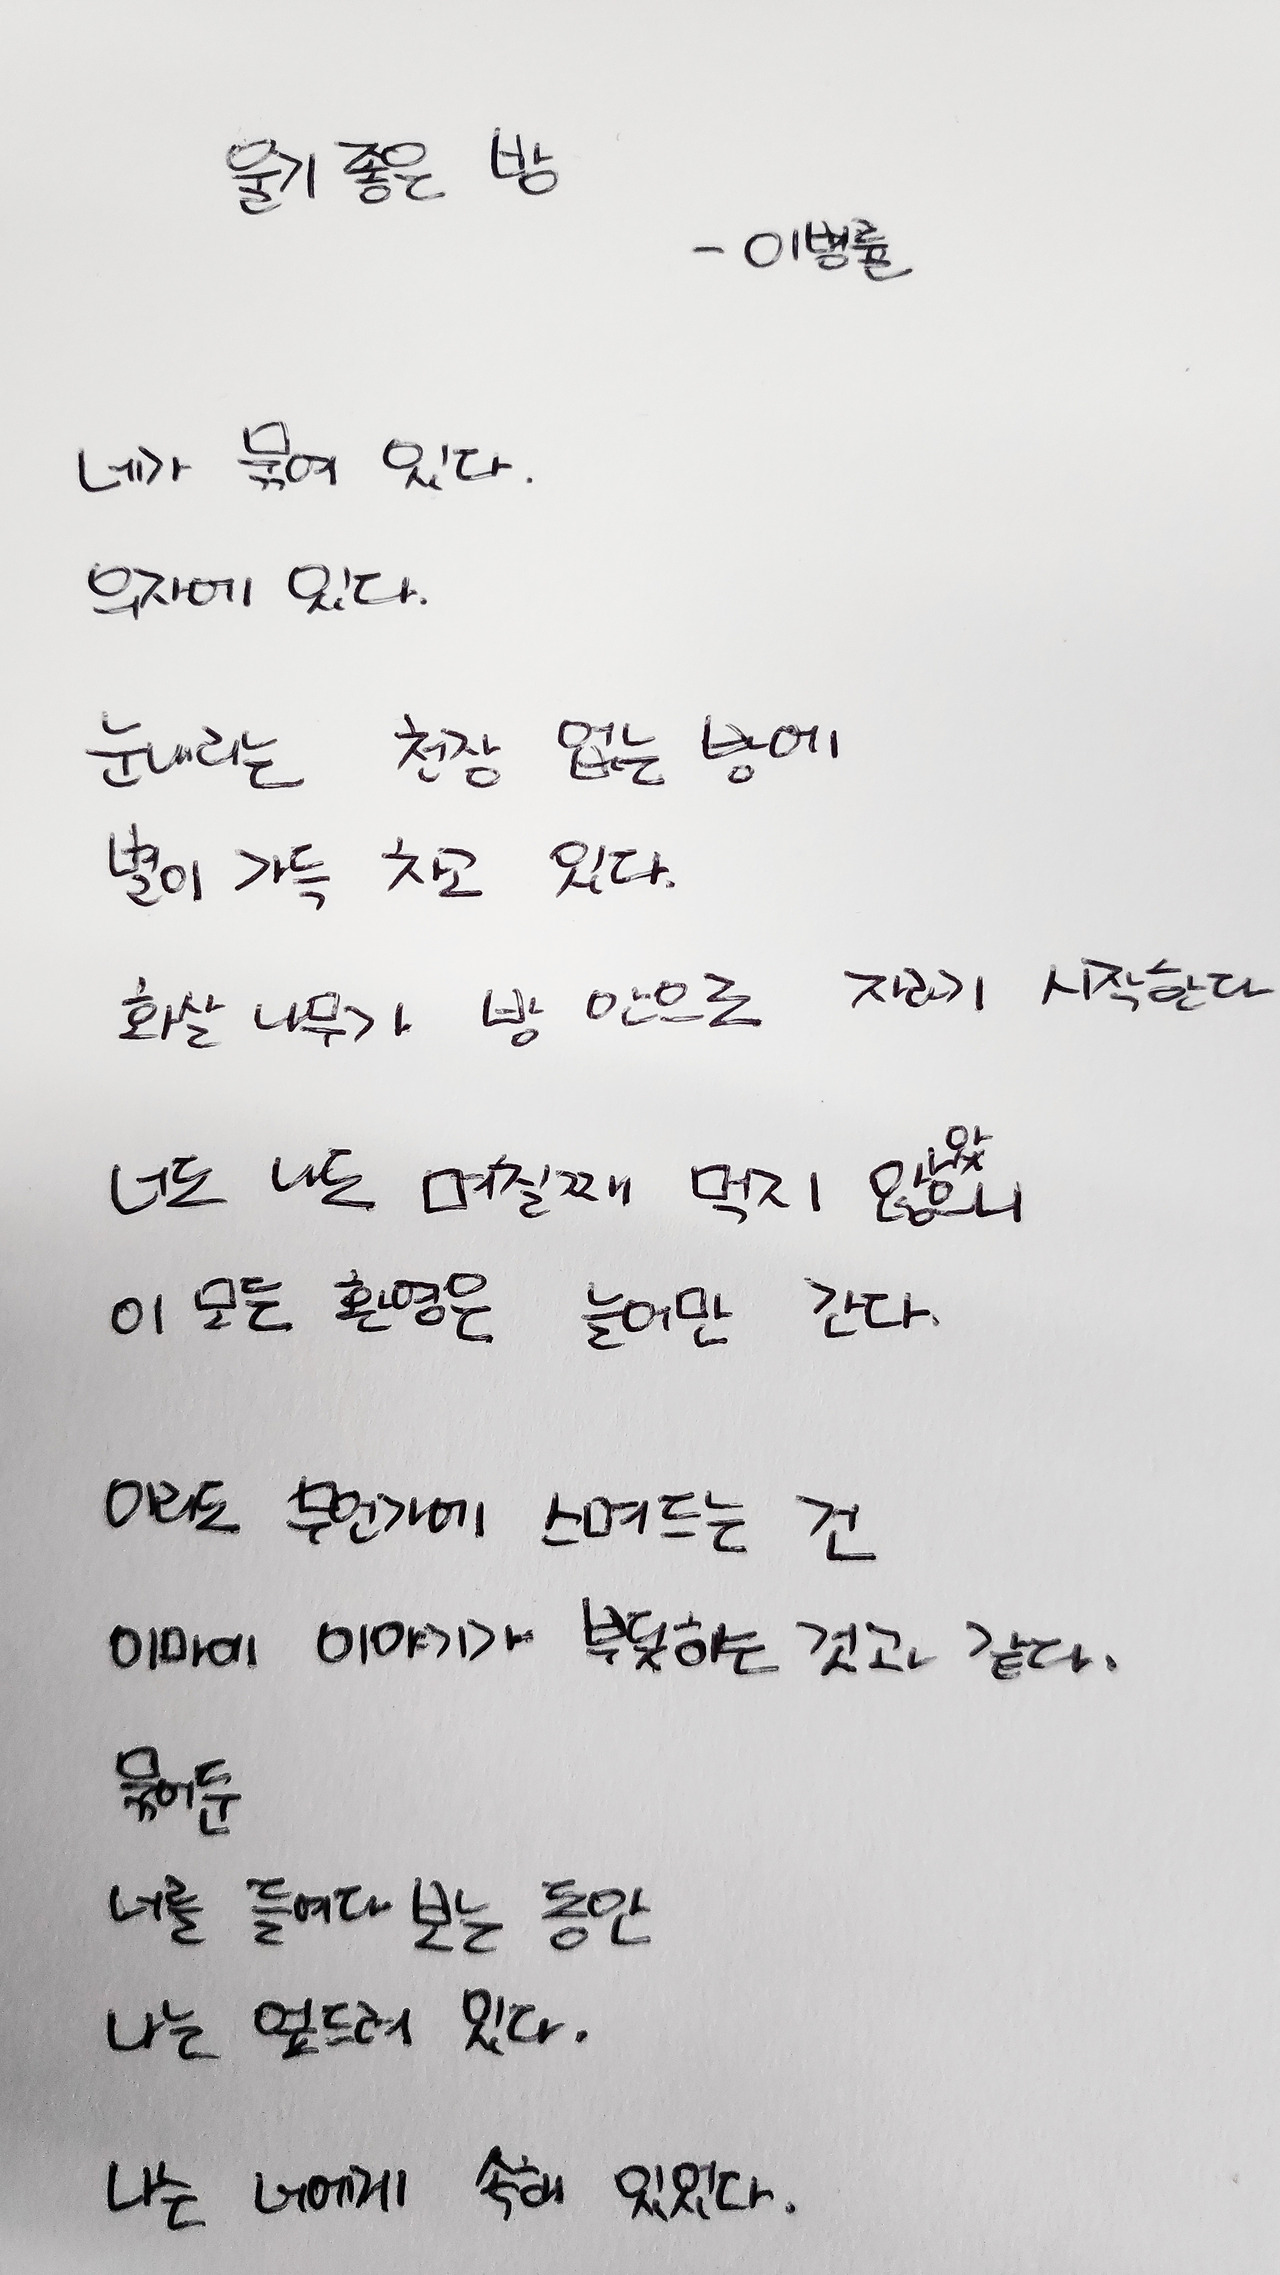 울기 좋은 방
- 이병률
네가 묶여 있다.
의자에 있다.
눈내리는 천장 없는 방에
별이 가득 차고 있다.
화살나무가 방 안으로 자라기 시작한다
너도 나도 며칠째 먹지 않았으니
이 모든 환영은 늘어만 간다.
이리도 무언가에 스며드는 건
이마에 이야기가 부딪히는 것과 같다.
묶어둔
너를 들여다 보는 동안
나는 엎드려 있다.
나는 너에게 속해 있었다.